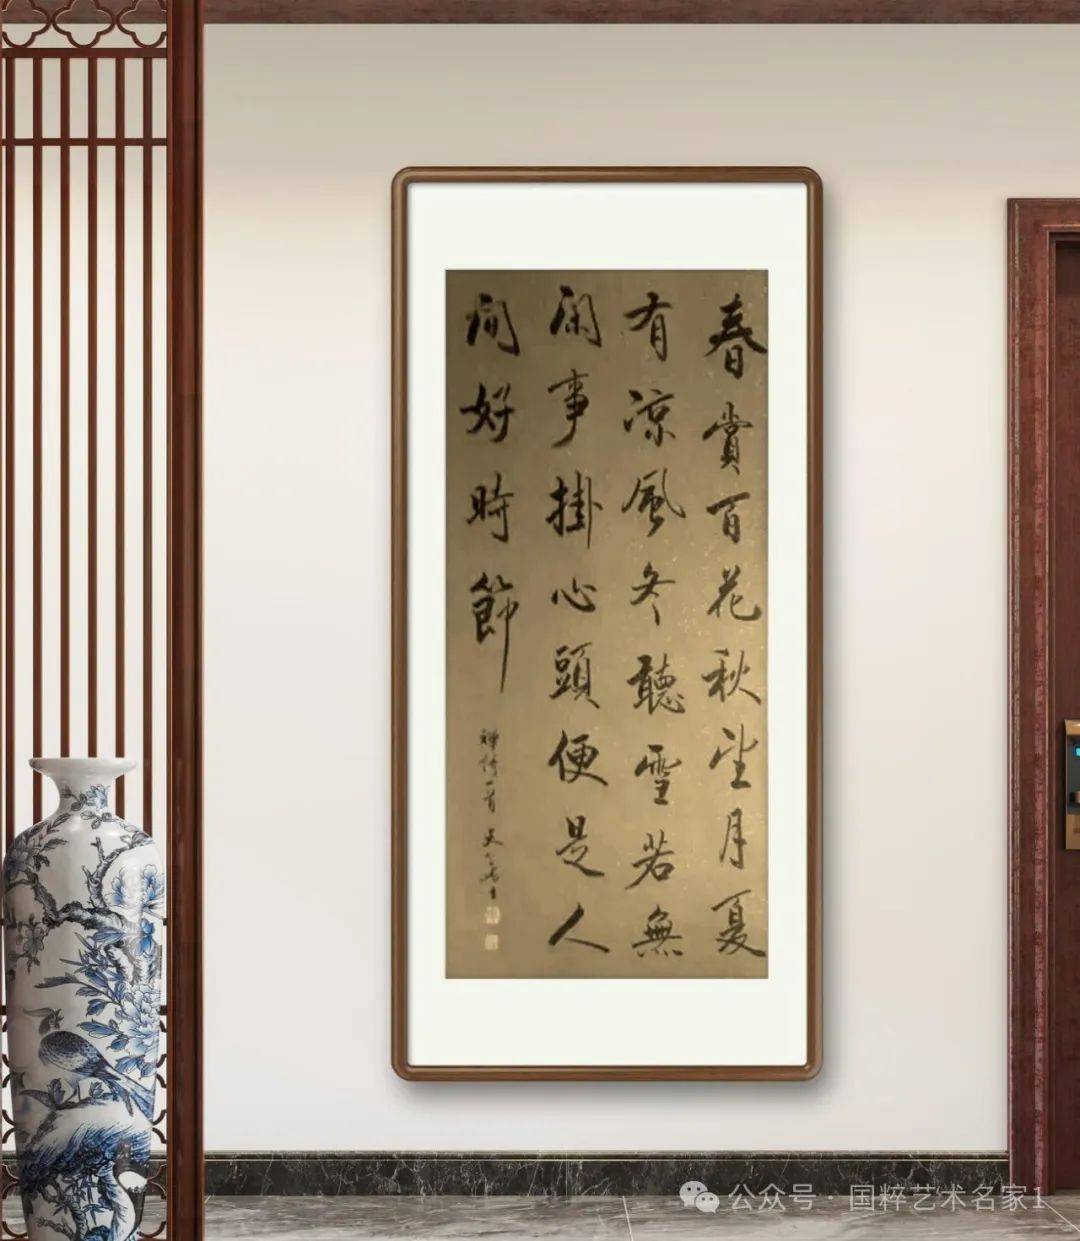 春賞百花秋望月夏
有涼風冬聽雪若無
閑事掛心頭便是人
間好時節
禪詩一首
公众号 · 国粹艺术名家1